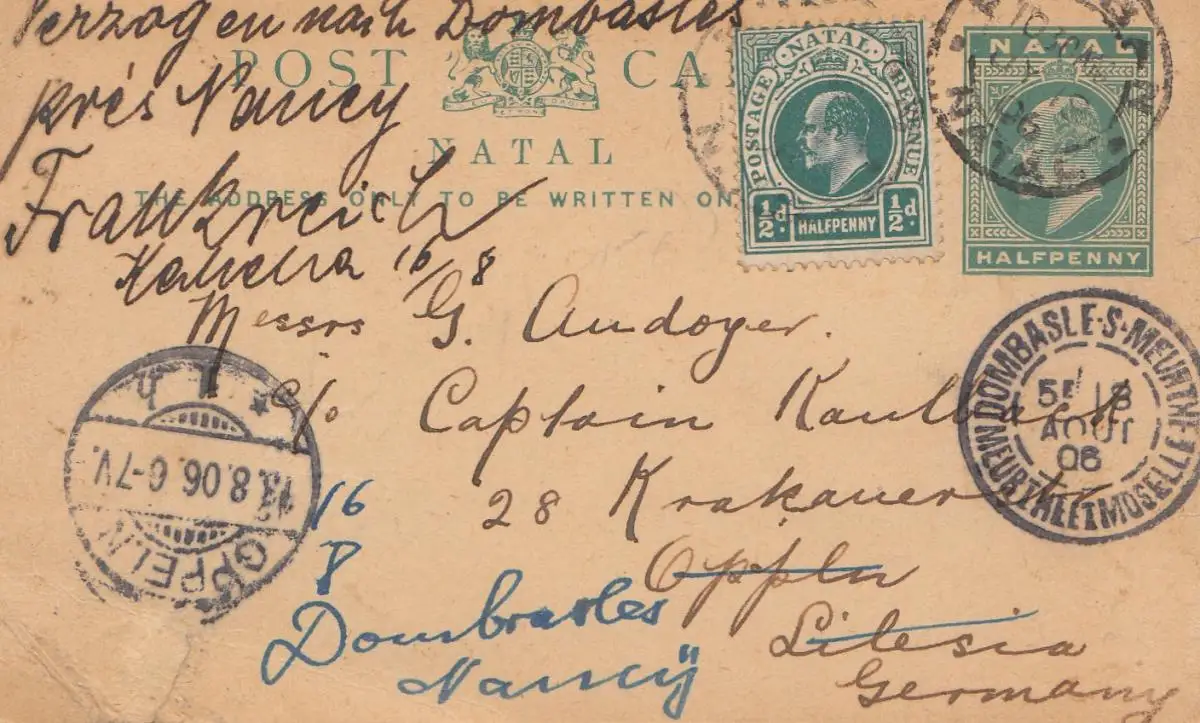 Verzogen nach Dombasles
près Nancy
Frankreich
16/8
POST CA
NATAL
THE ADDRESS ONLY TO BE WRITTEN ON
POSTAGE NATAL REVENUE
½d. HALFPENNY ½d.
NATAL
HALFPENNY
Messrs G. Andoyer.
c/o Captain Kaulback
28 Krakauerstr
Oppln
Silesia
Germany
16
8
Dombrasles
Nancÿ
OPPELN
13.8.06.6-7V.
DOMBASLE-S-MEURTHE
MEURTHE ET MOSELLE
5E 18
AOUT
06